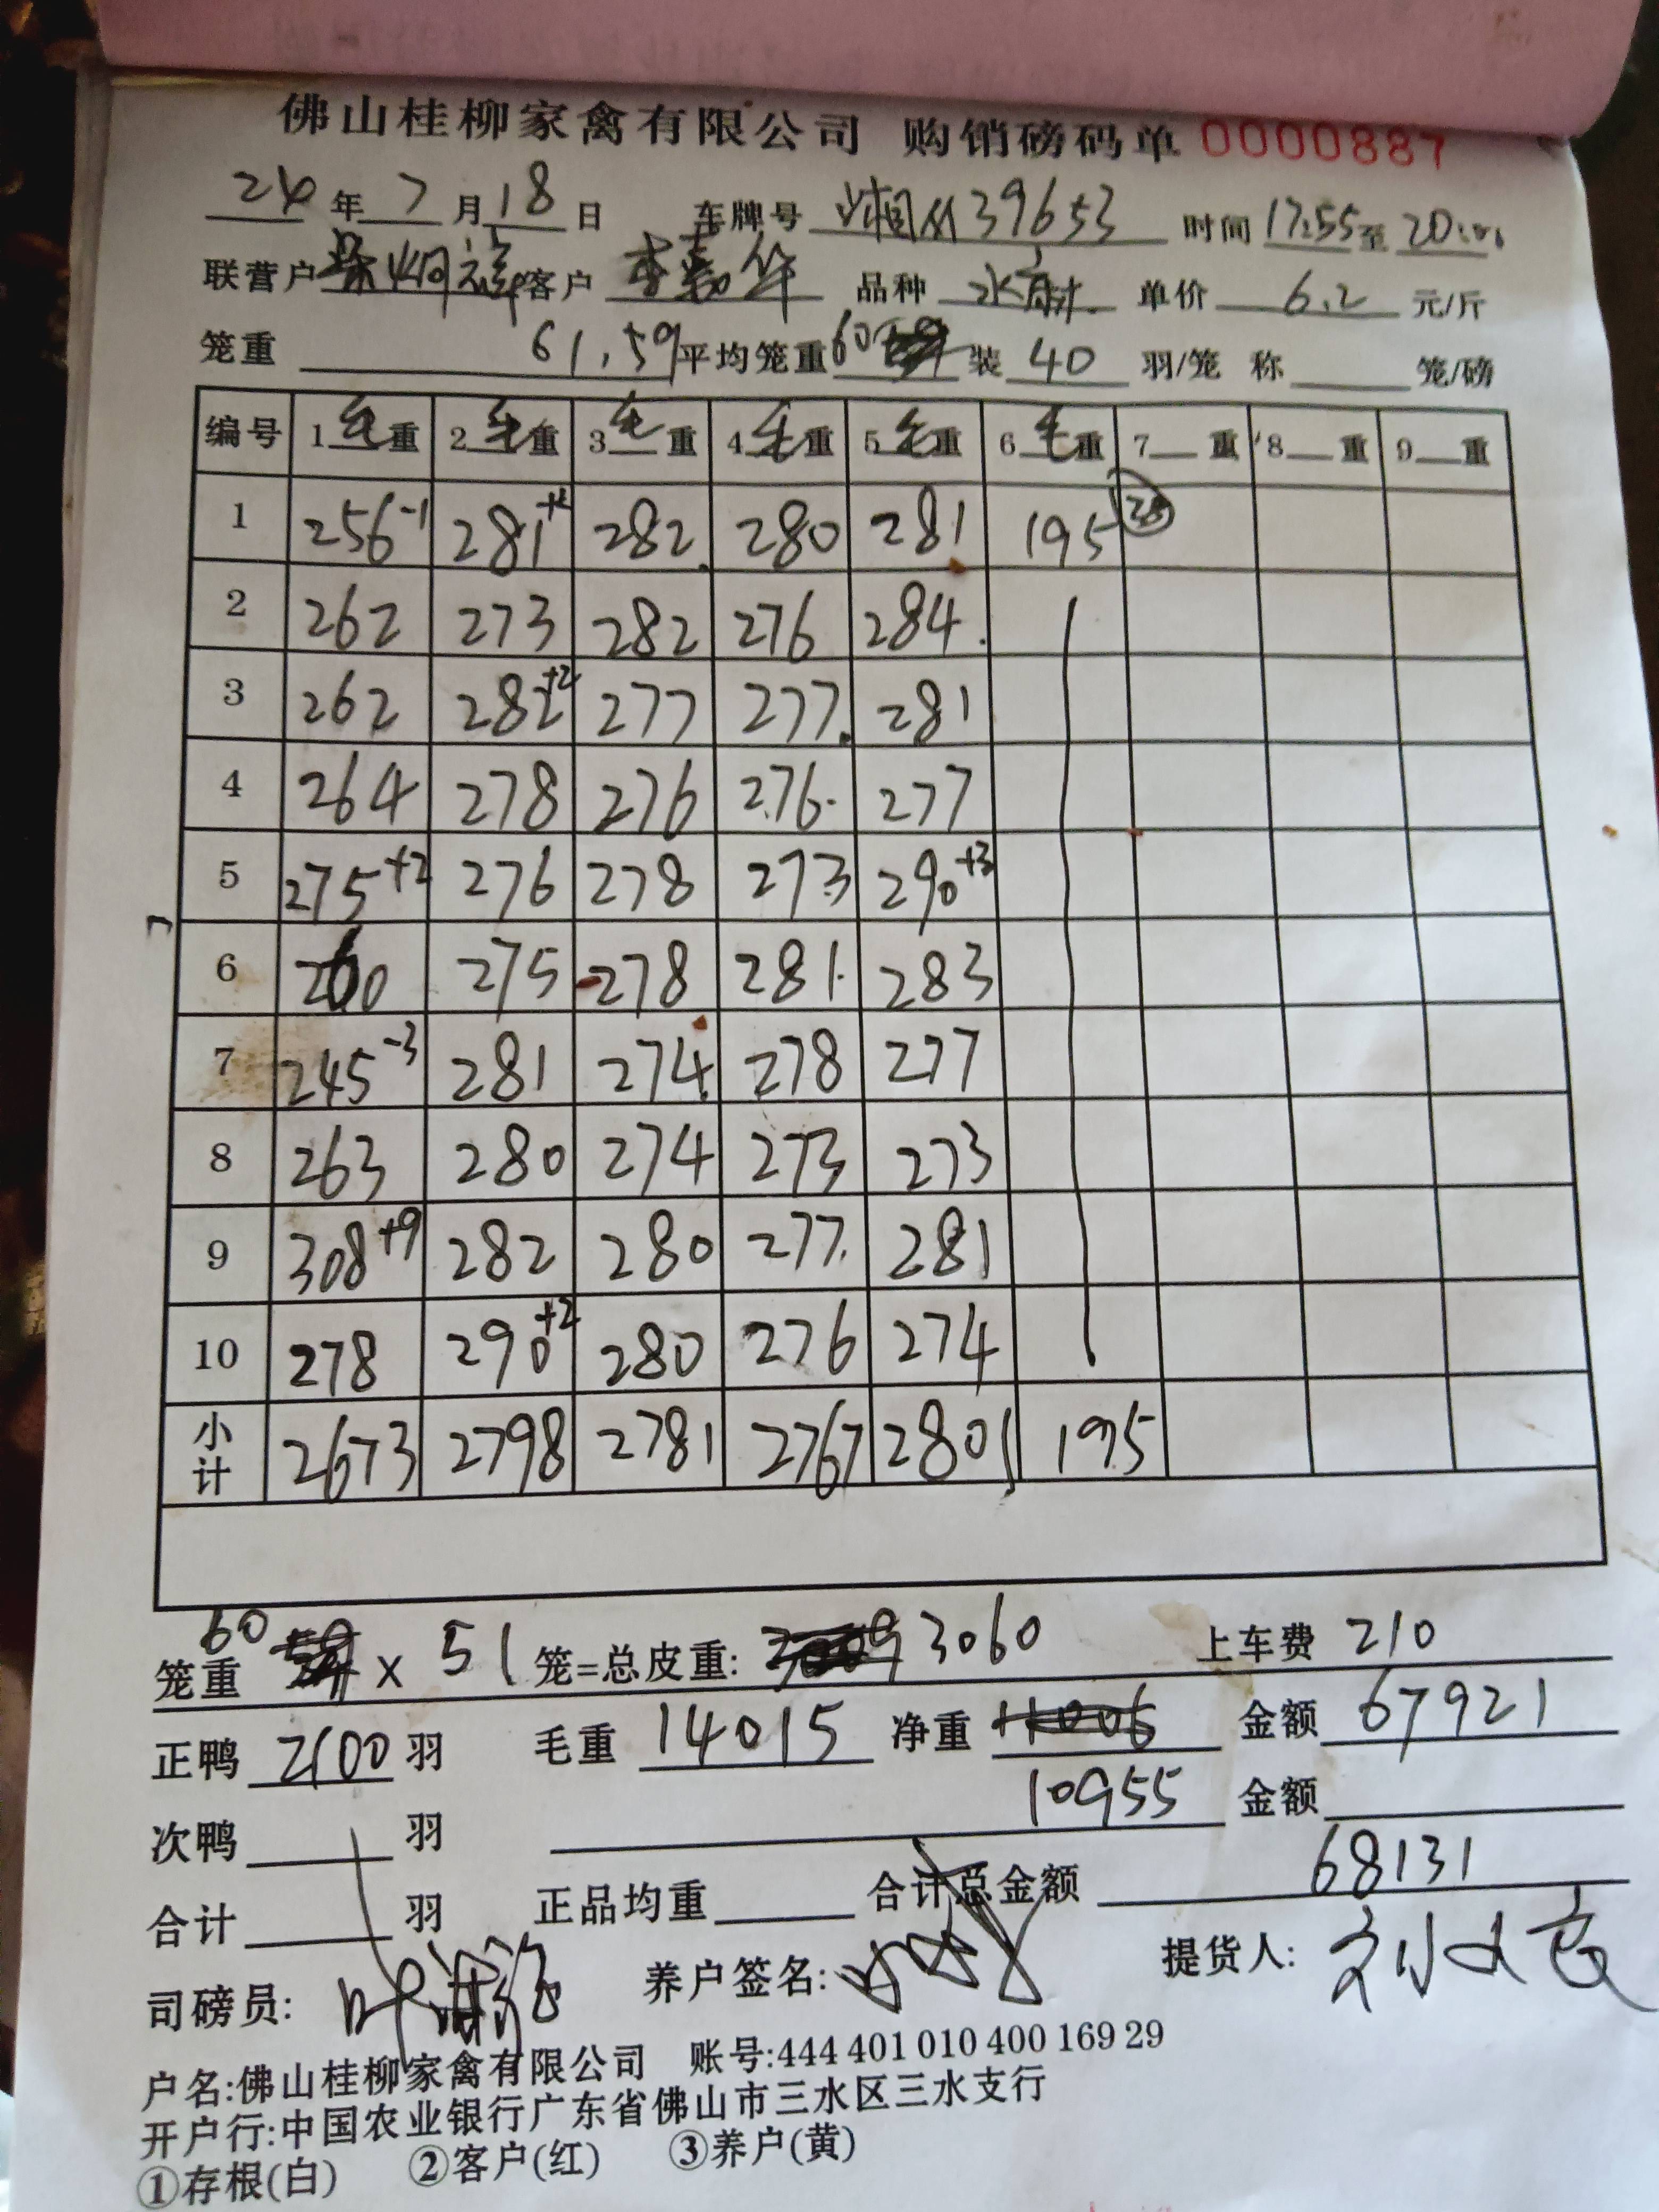 佛山桂柳家禽有限公司 购销磅码单 0000887
24 年 7 月 18 日 车牌号 39653 时间 17:55 至 20:
联营户 客户 李嘉华 品种 水麻 单价 6.2 元/斤
笼重 61,59 平均笼重 60 装 40 羽/笼 称 笼/磅
编号 1 毛 重 2 毛 重 3 毛 重 4 毛 重 5 毛 重 6 毛 重 7 重 8 重 9 重
1 256-1 281 282 280 281 195
2 262 273 282 276 284
3 262 282+2 277 277 281
4 264 278 276 276 277
5 275+2 276 278 273 290+3
6 260 275 278 281 283
7 245-3 281 274 278 277
8 263 280 274 273 273
9 308+9 282 280 277 281
10 278 290+2 280 276 274
小计 2673 2798 2781 2767 2801 195
笼重 60 × 51 笼=总皮重: 3060 上车费 210
正鸭 2100 羽 毛重 14015 净重 11006 金额 67921
次鸭 羽 10955 金额
合计 羽 正品均重 合计总金额 68131
司磅员: 养户签名: 提货人:
户名:佛山桂柳家禽有限公司 账号:444 401 010 400 169 29
开户行:中国农业银行广东省佛山市三水区三水支行
①存根(白) ②客户(红) ③养户(黄)